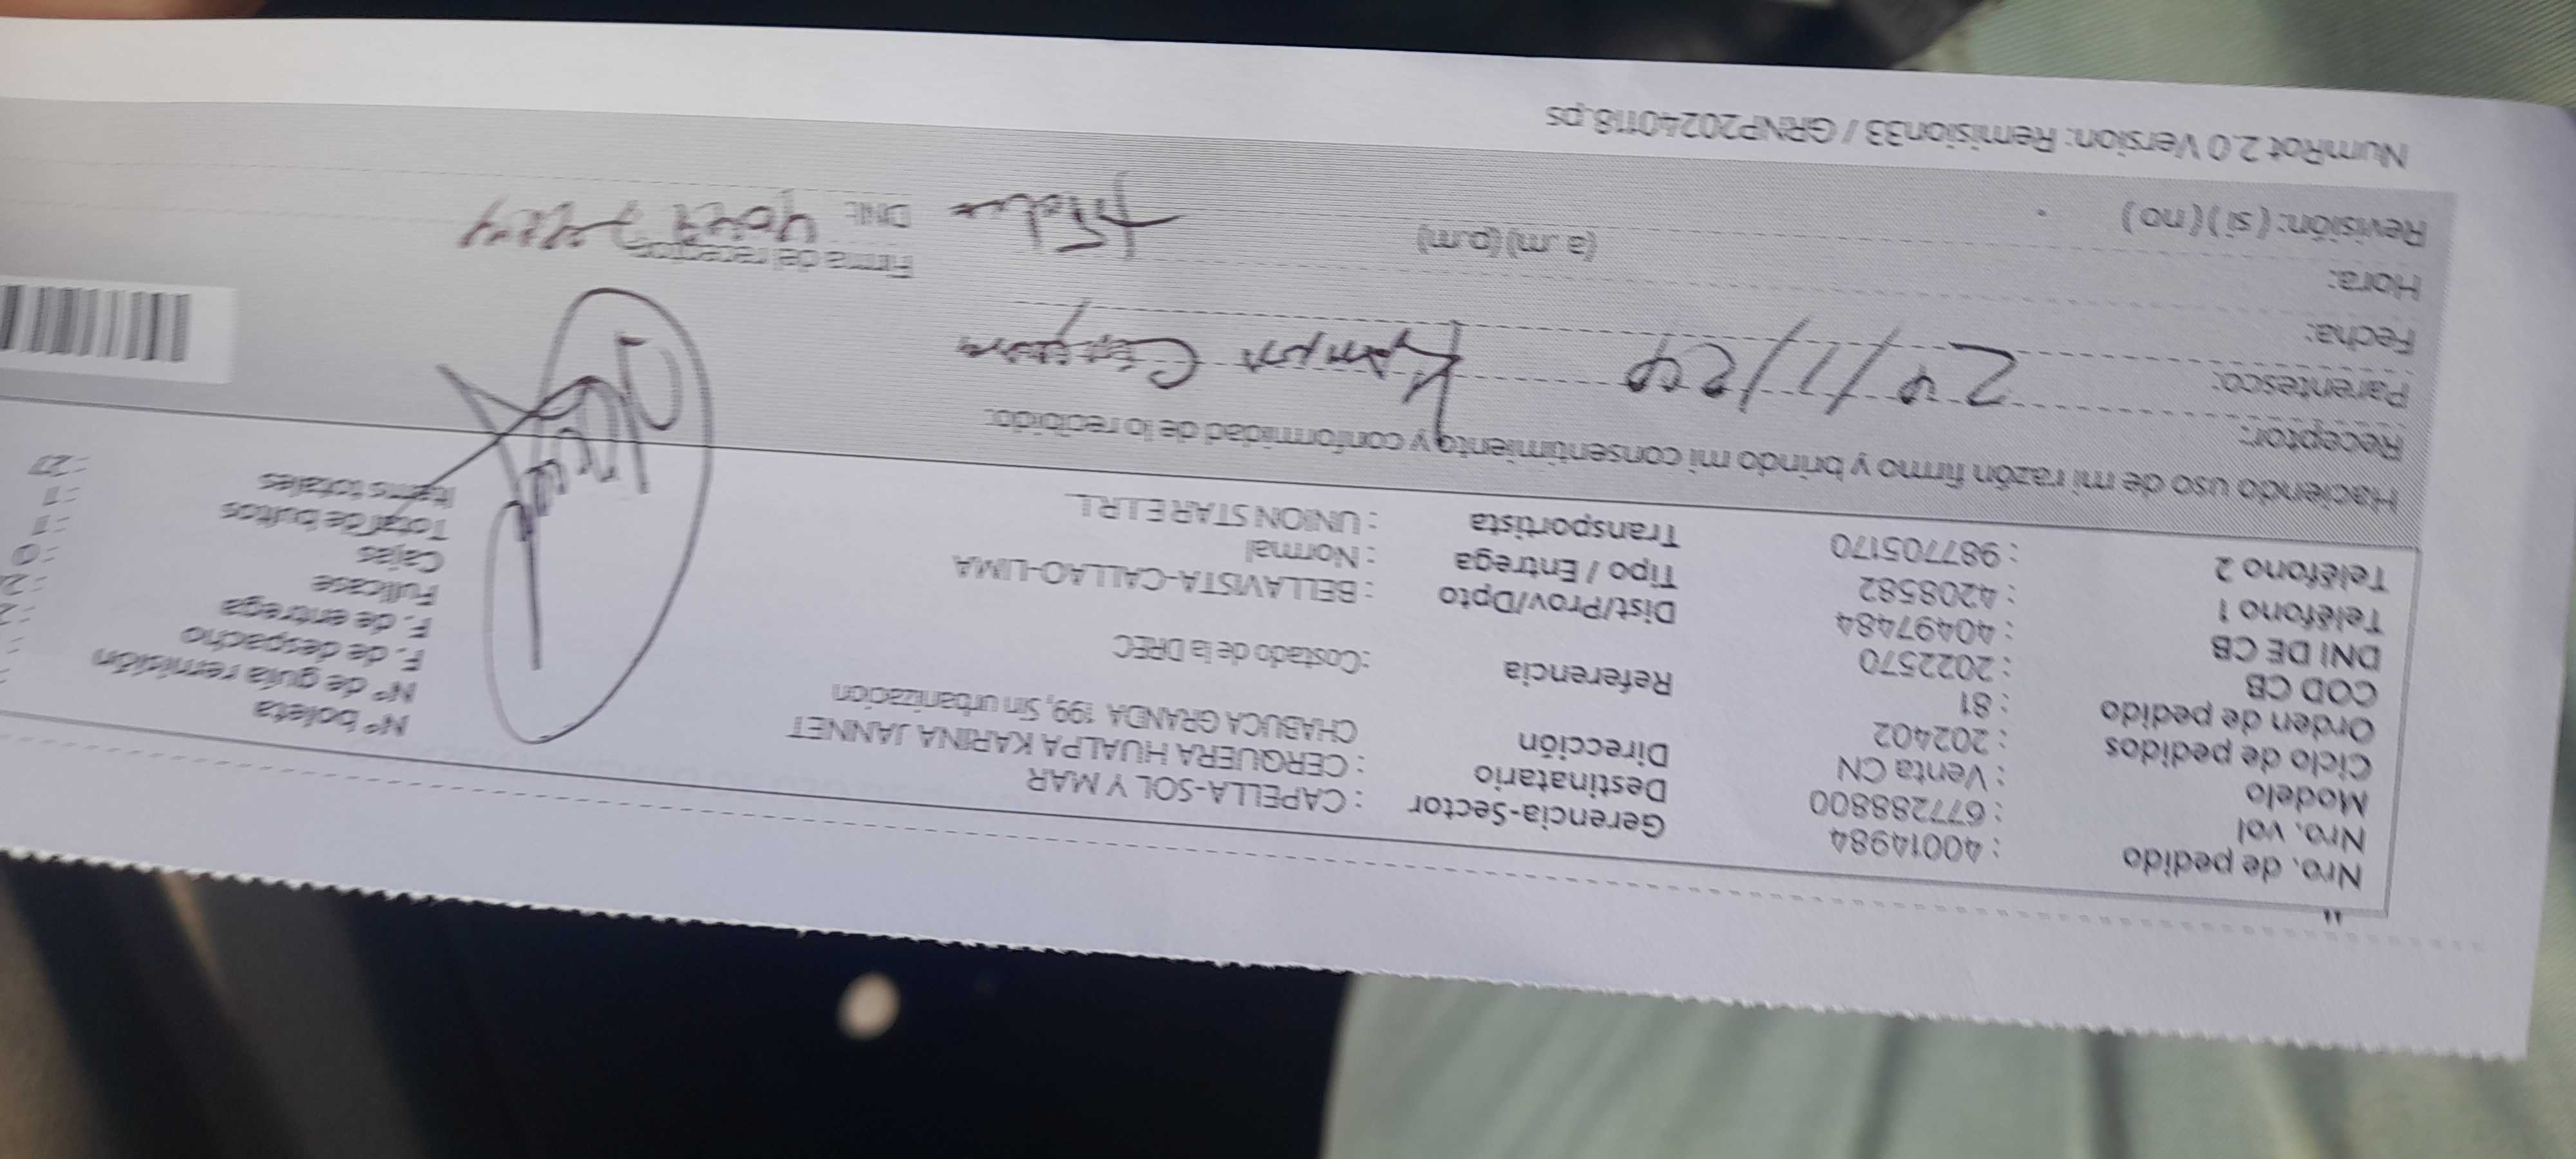 Nro. de pedido : 40014984 Gerencia-Sector : CAPELLA-SOL Y MAR Nº boleta
Nro. vol : 677288800 Destinatario : CERQUERA HUALPA KARINA JANNET Nº de guía remisión
Modelo : Venta CN Dirección CHABUCA GRANDA 199, Sin urbanizacion F. de despacho
Ciclo de pedidos : 202402 F. de entrega
Orden de pedido : 81 Referencia : Costado de la DREC Fullcase : 0
COD CB : 2022570 Cajas : 1
DNI DE CB : 40497484 Dist/Prov/Dpto : BELLAVISTA-CALLAO-LIMA Total de bultos : 1
Teléfono 1 : 4208582 Tipo / Entrega : Normal Items totales : 27
Teléfono 2 : 987705170 Transportista : UNION STAR E.I.R.L.
Haciendo uso de mi razón firmo y brindo mi consentimiento y conformidad de lo recibido:
Receptor:
Parentesco: 24/1/24
Fecha:
Hora: (a .m) (p.m) Firma del receptor
Revisión: ( si ) ( no ) DNI:
NumRot 2.0 Version: Remision33 / GRNP20240118.ps